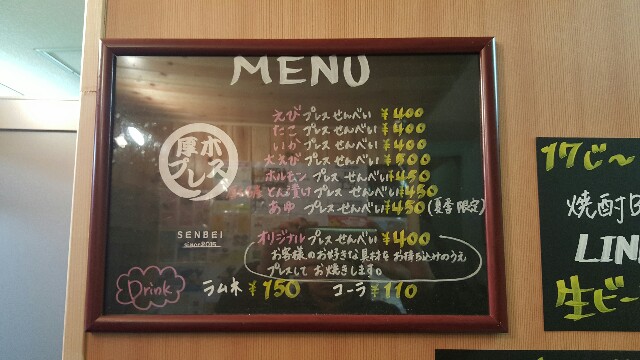 MENU
えび プレス せんべい ¥400
たこ プレス せんべい ¥400
いか プレス せんべい ¥400
大えび プレス せんべい ¥500
ホルモン プレス せんべい ¥450
とん漬け プレス せんべい ¥450
あゆ プレス せんべい ¥450 (夏季限定)
厚木
プレス
SENBEI
since2015
オリジナル プレス せんべい ¥400
お客様のお好きな具材を お持ち込みのうえ
プレスして お焼きします。
Drink ラムネ ¥150 コーラ ¥110
17じ〜
焼酎
LIN
生ビー